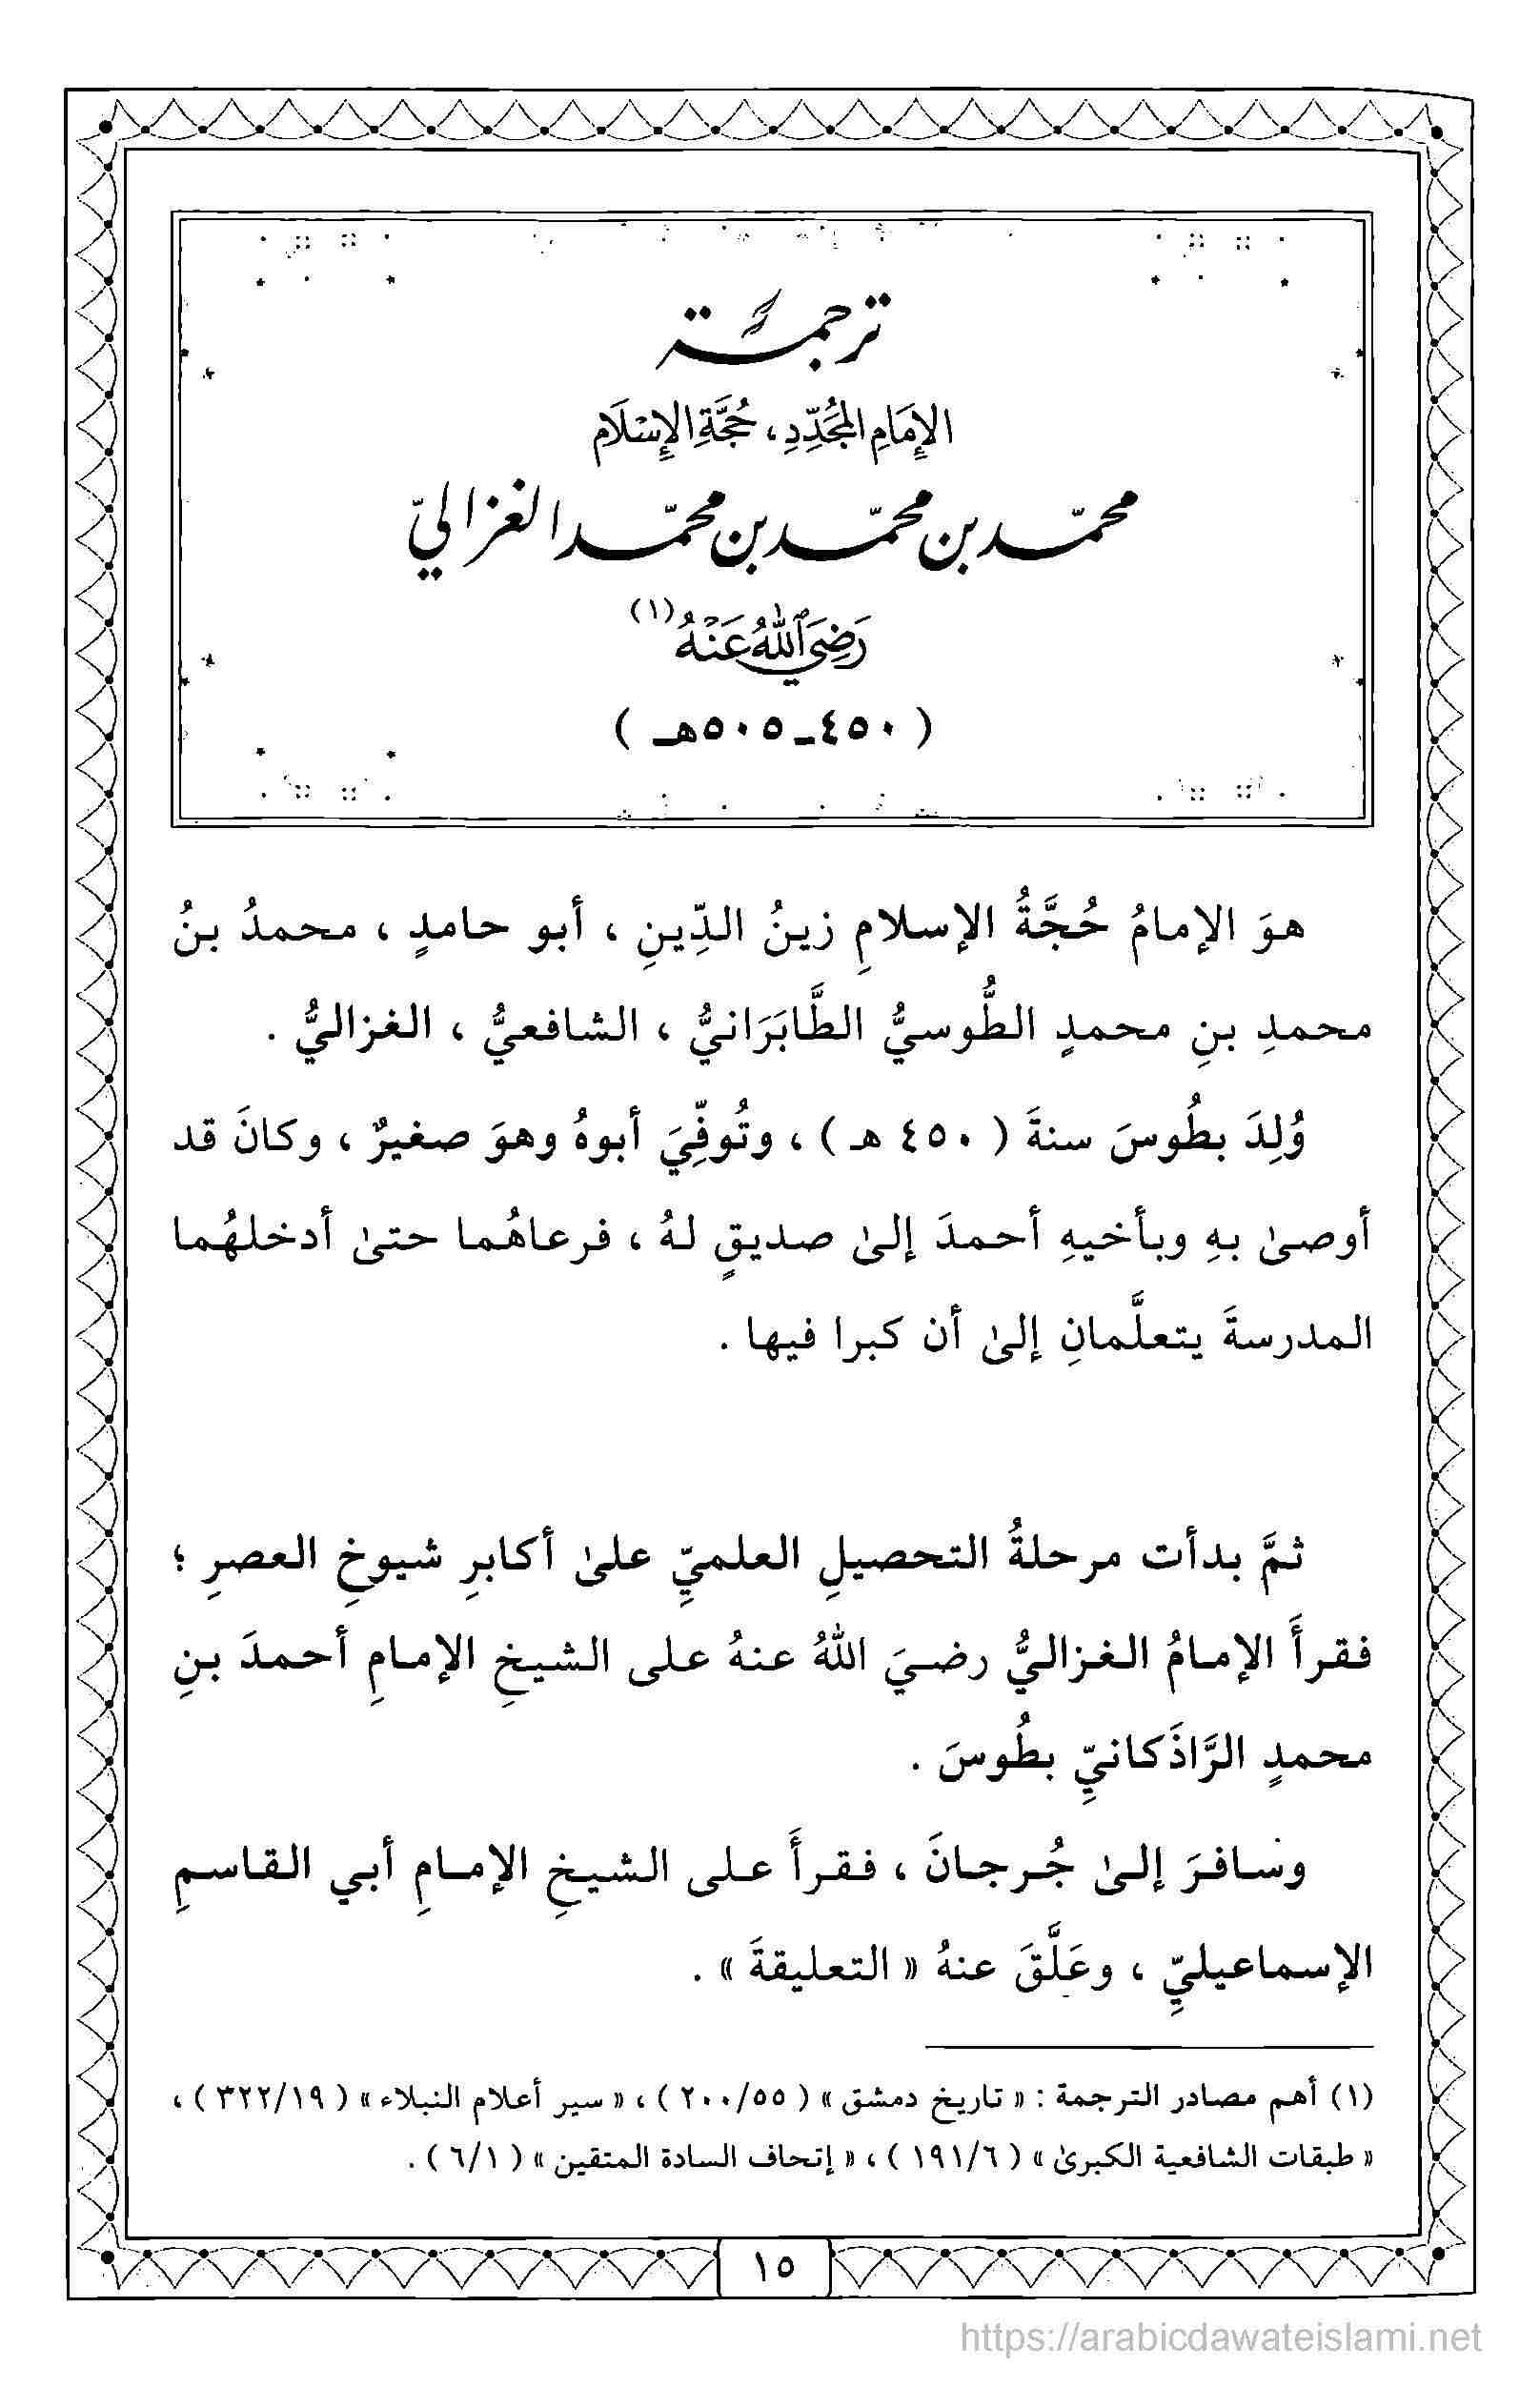 ترجمة
الإِمَامِ المُجَدِّدِ، حُجَّةِ الإِسْلَامِ
محمّد بن محمّد بن محمّد الغزاليّ
رَضِيَ اللهُ عَنْهُ (١)
( ٤٥٠ـ٥٠٥هـ )
هوَ الإمامُ حُجَّةُ الإسلامِ زينُ الدِّينِ ، أبو حامدٍ ، محمدُ بنُ
محمدِ بنِ محمدٍ الطُّوسيُّ الطَّابَرَانيُّ ، الشافعيُّ ، الغزاليُّ .
وُلِدَ بطُوسَ سنةَ ( ٤٥٠ هـ ) ، وتُوفِّيَ أبوهُ وهوَ صغيرٌ ، وكانَ قد
أوصىٰ بهِ وبأخيهِ أحمدَ إلىٰ صديقٍ لهُ ، فرعاهُما حتىٰ أدخلهُما
المدرسةَ يتعلَّمانِ إلىٰ أن كبرا فيها .
ثمَّ بدأت مرحلةُ التحصيلِ العلميِّ علىٰ أكابرِ شيوخِ العصرِ ؛
فقرأَ الإمامُ الغزاليُّ رضيَ اللهُ عنهُ على الشيخِ الإمامِ أحمدَ بنِ
محمدٍ الرَّاذَكانيِّ بطُوسَ .
وسافرَ إلىٰ جُرجانَ ، فقرأَ على الشيخِ الإمامِ أبي القاسمِ
الإسماعيليِّ ، وعَلَّقَ عنهُ « التعليقةَ » .
(١) أهم مصادر الترجمة : « تاريخ دمشق » ( ٢٠٠/٥٥ ) ، « سير أعلام النبلاء » ( ٣٢٢/١٩ ) ،
« طبقات الشافعية الكبرىٰ » ( ١٩١/٦ ) ، « إتحاف السادة المتقين » ( ٦/١ ) .
١٥
https://arabicdawateislami.net